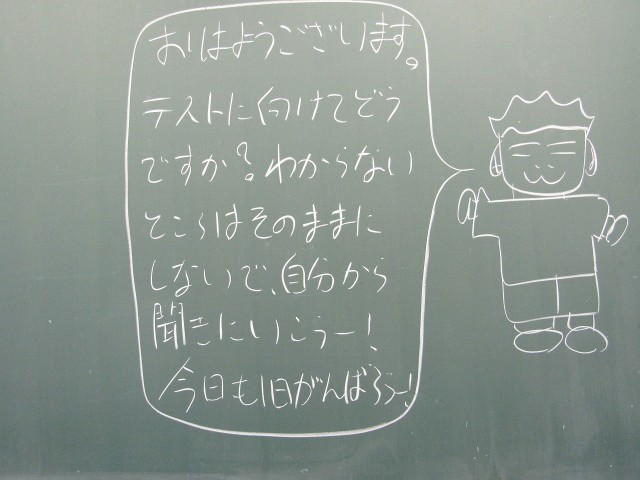 おはようございます。
テストに向けてどう
ですか？わからない
ところはそのままに
しないで、自分から
聞きにいこうー！
今日も1日がんばろうー！